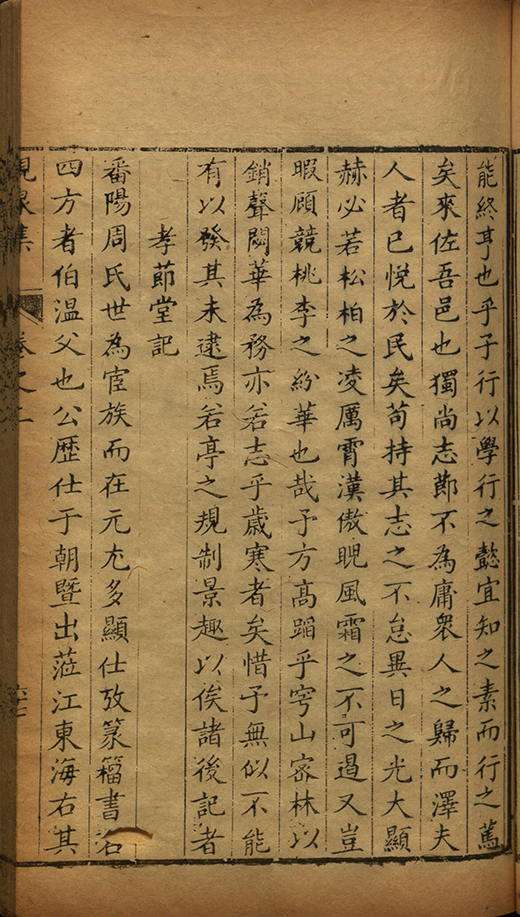 能終亨也乎子行以學行之懿宜知之素而行之篤
矣來佐吾邑也獨尚志節不為庸衆人之歸而澤夫
人者已悅於民矣苟持其志之不怠異日之光大顯
赫必若松柏之凌厲霄漢傲睨風霜之不可遏又豈
暇顧競桃李之紛華也哉予方高蹈乎穹山密林以
銷聲閟華為務亦若志乎歲寒者矣惜予無似不能
有以發其未逮焉若亭之規制景趣以俟諸後記者
孝節堂記
番陽周氏世為宦族而在元尤多顯仕攷篆籀書名
四方者伯溫父也公歷仕于朝暨出蒞江東海右其
峴泉集
卷之二